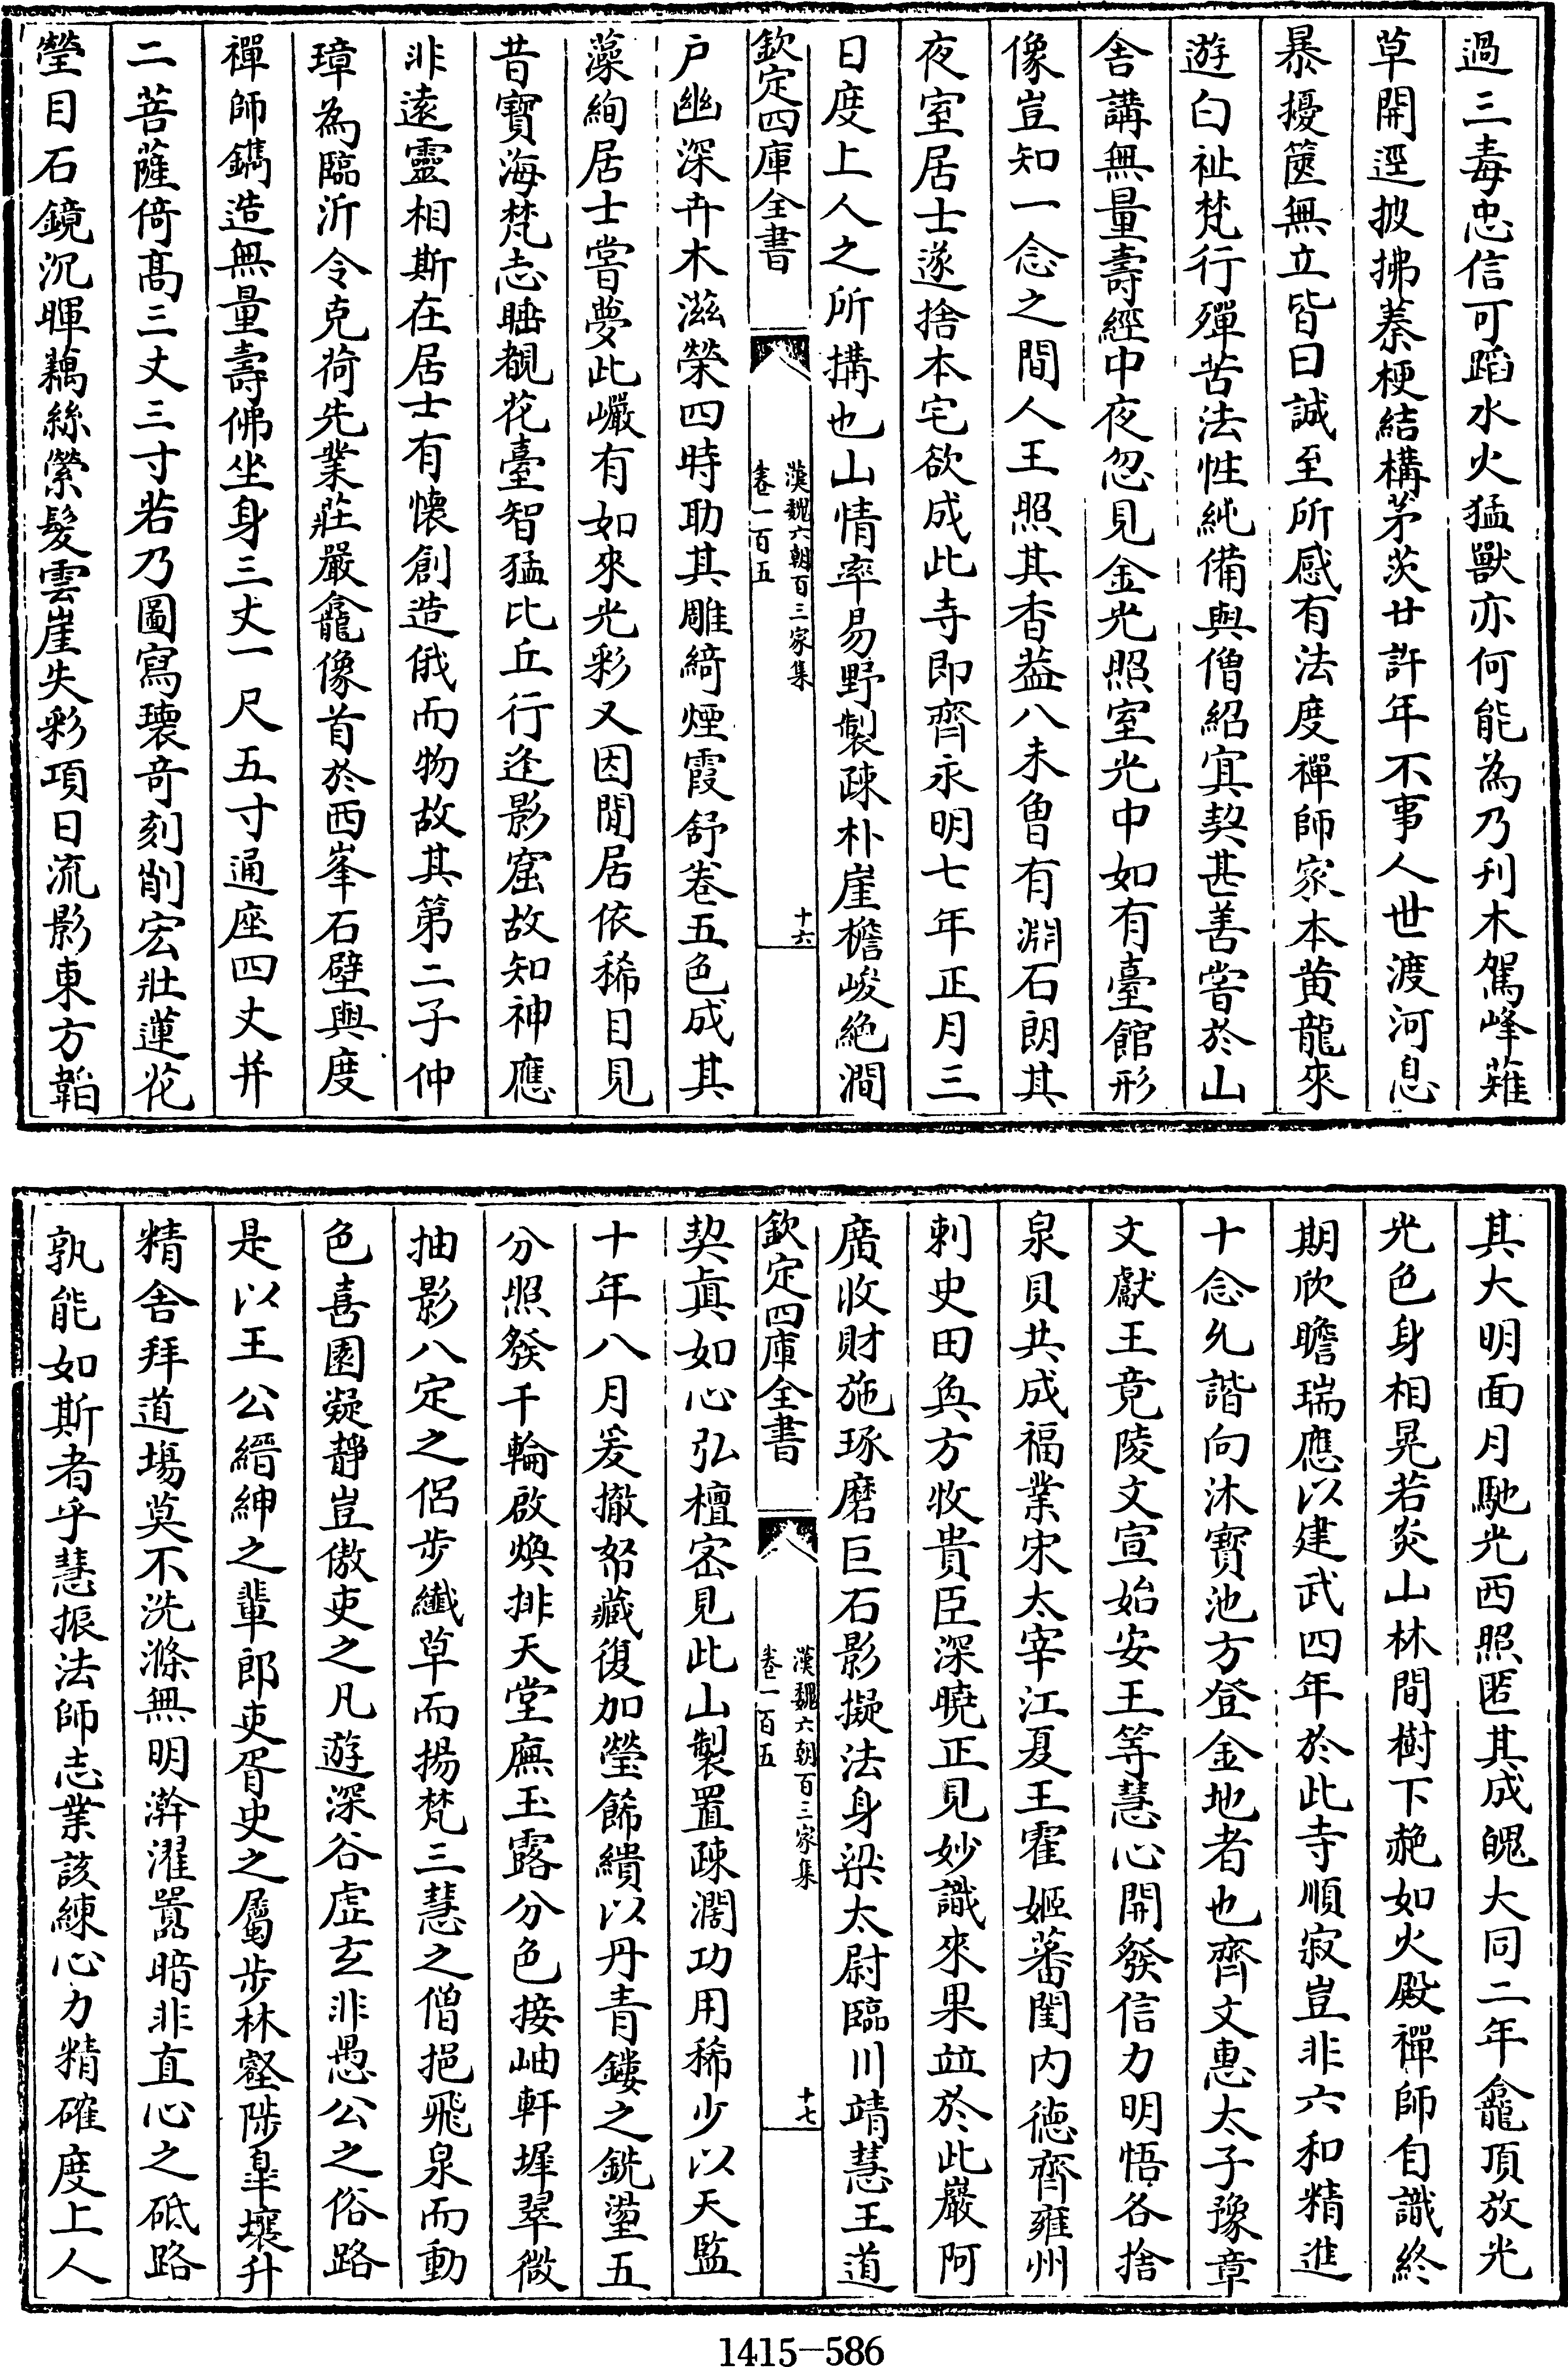 過三毒忠信可蹈水火猛獸亦何能為乃刋木駕峰薙
草開逕披拂蓁梗結構茅茨廿許年不事人世渡河息
暴擾篋無立皆曰誠至所感有法度禪師家本黄龍來
遊白社梵行殫苦法性純備與僧紹冥契甚善嘗於山
舍講無量壽經中夜忽見金光照室光中如有臺館形
像豈知一念之間人王照其香葢八未曽有淵石朗其
夜室居士遂捨本宅欲成此寺即齊永明七年正月三
日度上人之所搆也山情率易野製疎朴崖檐峻絶澗
欽定四庫全書
漢魏六朝百三家集
卷一百五
十六
户幽深卉木滋榮四時助其雕綺煙霞舒卷五色成其
藻絢居士嘗夢此巖有如來光彩又因閒居依稀目見
昔寶海梵志睡覩花臺智猛比丘行逢影窟故知神應
非遠靈相斯在居士有懐創造俄而物故其第二子仲
璋為臨沂令克荷先業莊嚴龕像首於西峯石壁與度
禪師鐫造無量壽佛坐身三丈一尺五寸通座四丈并
二菩薩倚髙三丈三寸若乃圖寫瓌奇刻削宏壯蓮花
瑩目石鏡沉暉藕絲縈髮雲崖失彩項日流影東方韜
其大明面月馳光西照匿其成魄大同二年龕頂放光
光色身相晃若炎山林間樹下赩如火殿禪師自識終
期欣瞻瑞應以建武四年於此寺順寂豈非六和精進
十念允諧向沐寳池方登金地者也齊文惠太子豫章
文獻王竟陵文宣始安王等慧心開發信力明悟各捨
泉貝共成福業宋太宰江夏王霍姬蕃閨内徳齊雍州
刺史田奐方牧貴臣深曉正見妙識來果竝於此巖阿
廣收財施琢磨巨石影擬法身梁太尉臨川靖慧王道
欽定四庫全書
漢魏六朝百三家集
卷一百五
十七
契眞如心弘檀宻見此山製置疎濶功用稀少以天監
十年八月爰撤帑藏復加瑩飾繢以丹青鏤之銑鋈五
分照發千輪啟煥排天堂廡玉露分色接岫軒墀翠微
抽影八定之侣步纎草而揚梵三慧之僧挹飛泉而動
色喜園凝靜豈傲吏之凡遊深谷虚玄非愚公之俗路
是以王公縉紳之輩郎吏胥史之屬步林壑陟臯壤升
精舍拜道塲莫不洗滌無明澣濯嚚暗非直心之砥路
孰能如斯者乎慧振法師志業該練心力精確度上人
1415—586